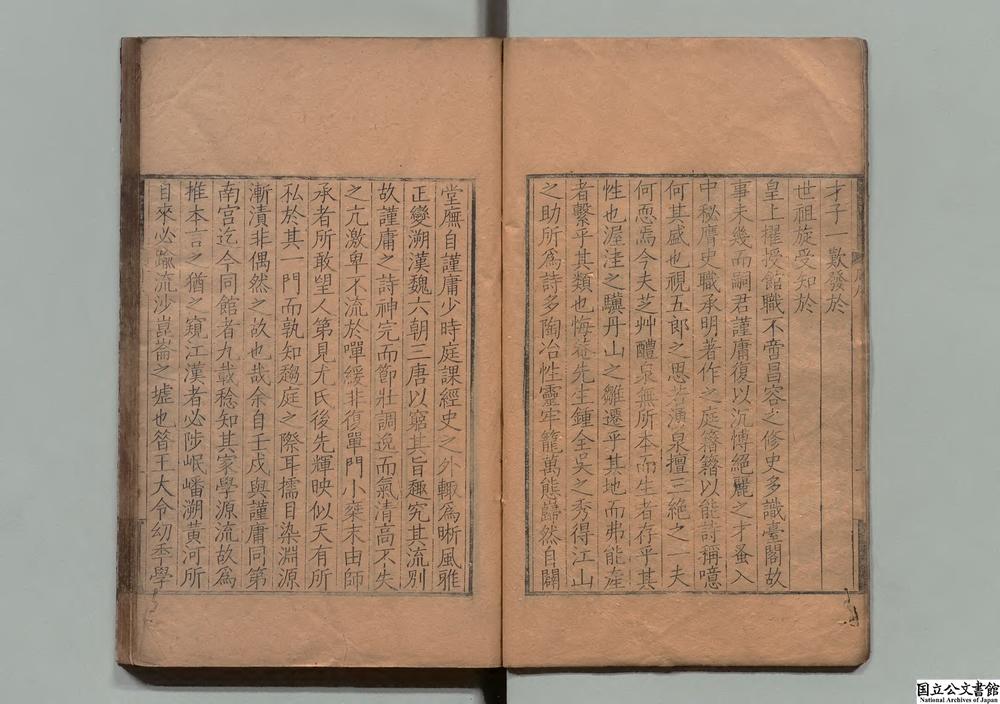 才子一歎發於
世祖旋受知於
皇上擢授館職不啻昌容之修史多識臺閣故
事未幾而嗣君謹庸復以沉博絕麗之才蚤入
中秘膺史職承明著作之庭籍籍以能詩稱噫
何其盛也視五郎之思若湧泉擅三絕之一夫
何恧焉今夫芝艸醴泉無所本而生者存乎其
性也渥洼之驥丹山之雛遷乎其地而弗能產
者繫乎其類也悔菴先生鍾全吳之秀得江山
之助所為詩多陶冶性靈牢籠萬態巋然自闢
堂廡自謹庸少時庭課經史之外輒為晰風雅
正變溯漢魏六朝三唐以窮其旨趣究其流別
故謹庸之詩神完而節壯調逸而氣清高不失
之亢激卑不流於嘽緩非復單門小藁末由師
承者所敢望人第見尤氏後先輝映似天有所
私於其一門而孰知趨庭之際耳擩目染淵源
漸漬非偶然之故也哉余自壬戌與謹庸同第
南宮迄今同館者九載稔知其家學源流故為
推本言之猶之窺江漢者必陟岷嶓溯黃河所
自來必踰流沙崑崙之墟也昝王大令幼秀學
国立公文書館
National Archives of Japan